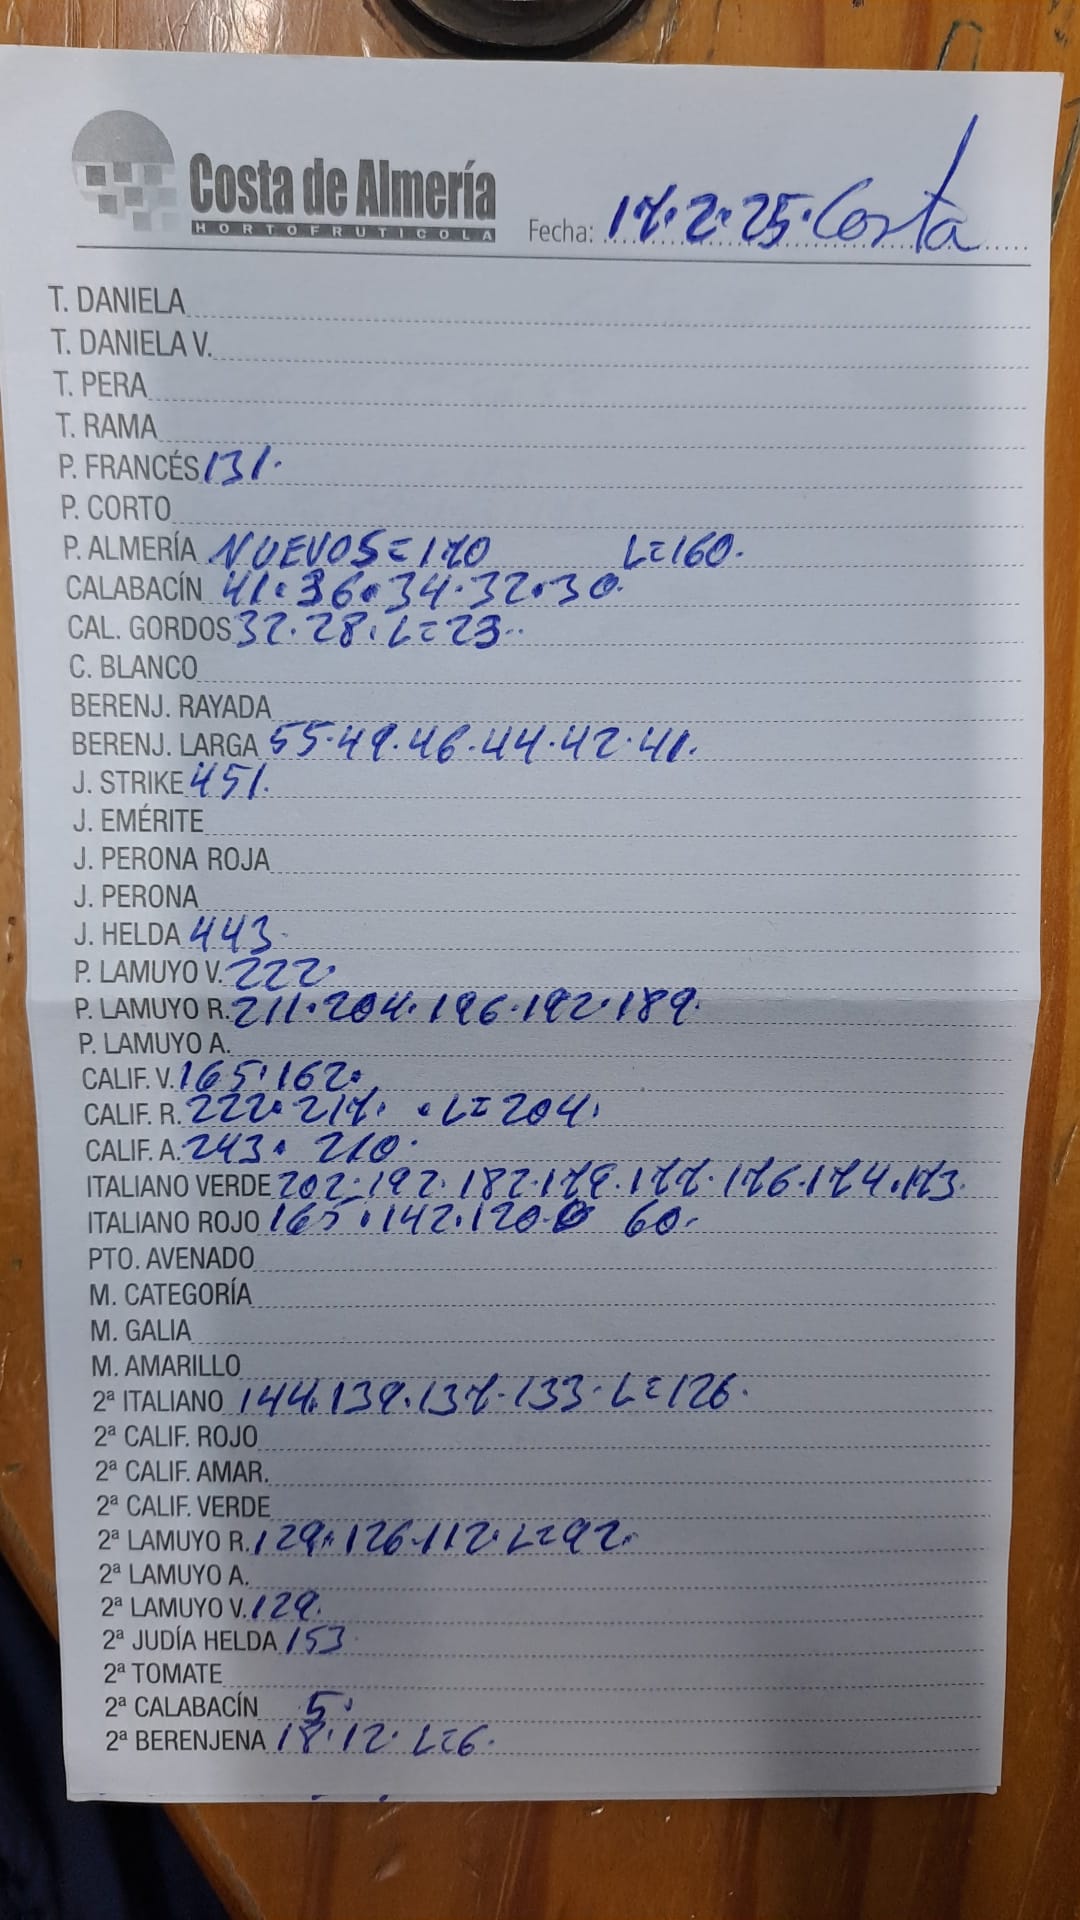 Costa de Almería
HORTOFRUTICOLA
Fecha: 17.2.25. Costa
T. DANIELA
T. DANIELA V.
T. PERA
T. RAMA
P. FRANCÉS 131.
P. CORTO
P. ALMERÍA NUEVOS=170 L=160.
CALABACÍN 41.36.34.32.30.
CAL. GORDOS 32.28. L=23..
C. BLANCO
BERENJ. RAYADA
BERENJ. LARGA 55.49.46.44.42.41.
J. STRIKE 451.
J. EMÉRITE
J. PERONA ROJA
J. PERONA
J. HELDA 443.
P. LAMUYO V. 222.
P. LAMUYO R. 211.204.196.192.189.
P. LAMUYO A.
CALIF. V. 165.162.
CALIF. R. 222.217. . L=204.
CALIF. A. 243. 210.
ITALIANO VERDE 202.192.182.179.177.176.174.173.
ITALIANO ROJO 165.142.120. 60.
PTO. AVENADO
M. CATEGORÍA
M. GALIA
M. AMARILLO
2ª ITALIANO 144.139.137.133. L=126.
2ª CALIF. ROJO
2ª CALIF. AMAR.
2ª CALIF. VERDE
2ª LAMUYO R. 129.126.112. L=92.
2ª LAMUYO A.
2ª LAMUYO V. 129.
2ª JUDÍA HELDA 153
2ª TOMATE
2ª CALABACÍN 5.
2ª BERENJENA 18.12. L=6.